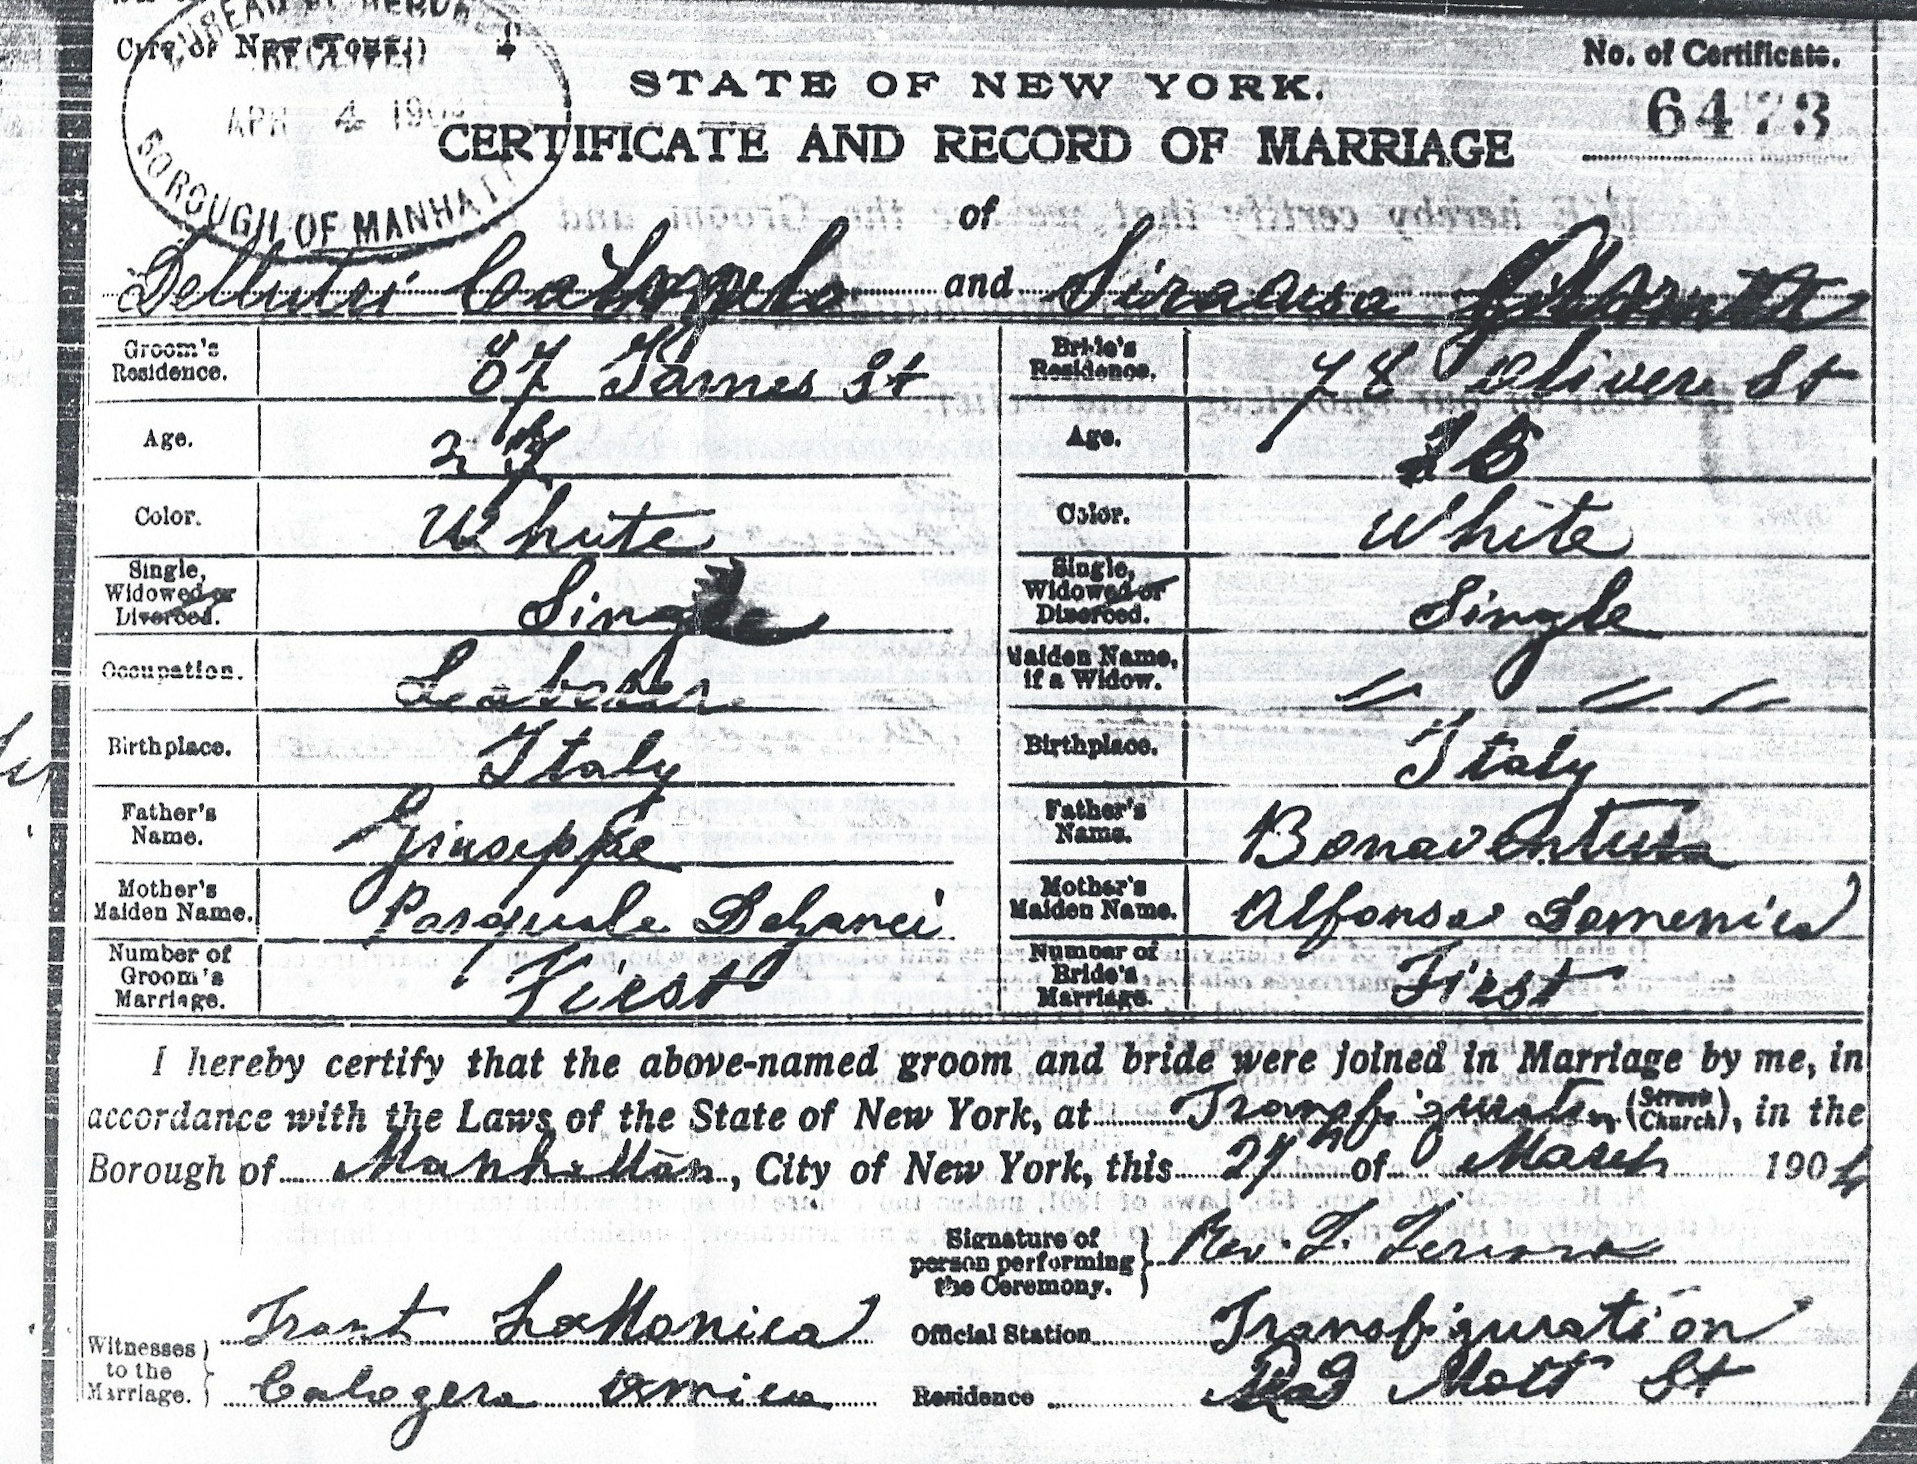 BUREAU OF RECORDS
City of New York
RECEIVED
APR 4 190
BOROUGH OF MANHATT
No. of Certificate.
6473
STATE OF NEW YORK.
CERTIFICATE AND RECORD OF MARRIAGE
of
Dellutri and Siracusa
Groom's Residence. 87 James St
Bride's Residence. 78 Oliver St
Age. 2
Age.
Color. White
Color. White
Single, Widowed or Divorced. Single
Single, Widowed or Divorced. Single
Occupation.
Maiden Name, if a Widow. " " "
Birthplace. Italy
Birthplace. Italy
Father's Name. Giuseppe
Father's Name. Bonaventura
Mother's Maiden Name. Pasquale
Mother's Maiden Name. Alfonsa Domenica
Number of Groom's Marriage. First
Number of Bride's Marriage. First
I hereby certify that the above-named groom and bride were joined in Marriage by me, in
accordance with the Laws of the State of New York, at Transfiguration (Street Church), in the
Borough of Manhattan, City of New York, this 27th of March 1904
Signature of person performing the Ceremony. Rev. F.
Witnesses to the Marriage.
Frank LaMonica
Calogera Amico
Official Station Transfiguration
Residence Mott St